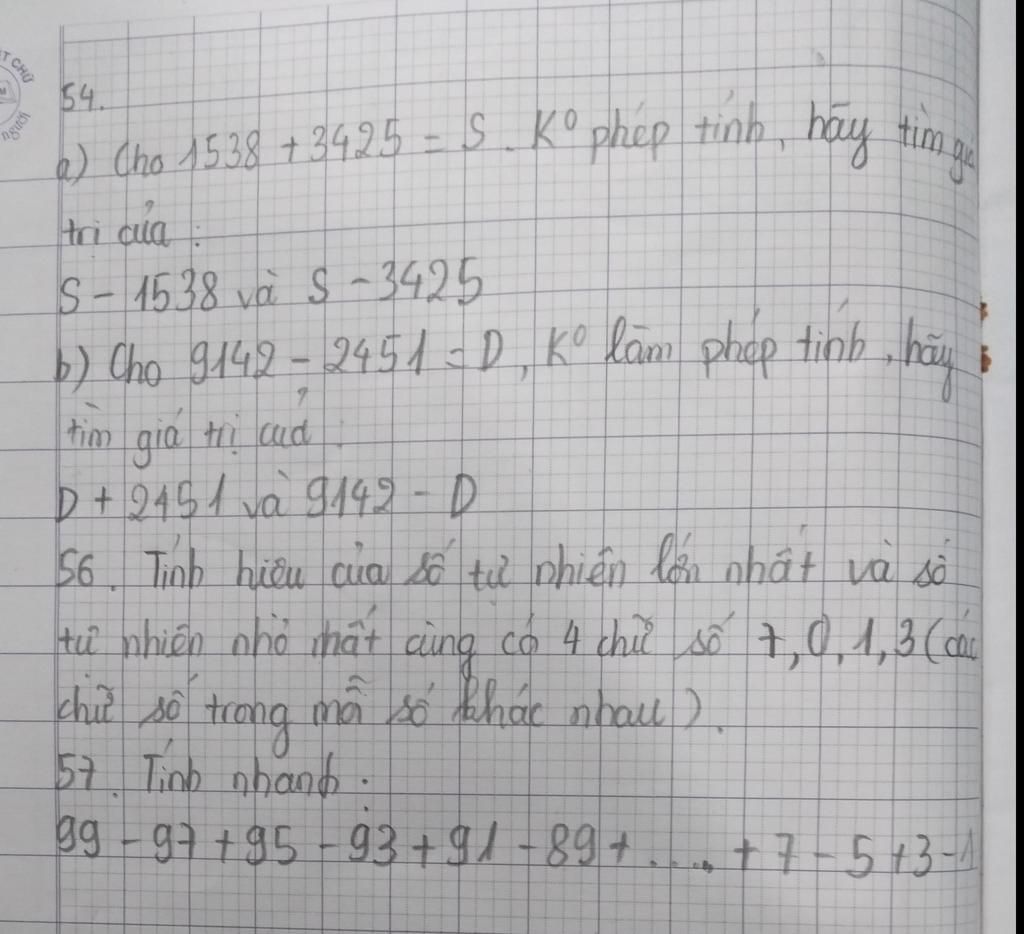 T CHỮ
người
54.
a) Cho 1538 + 3425 = S. K° phép tính, hãy tìm giá
trị của :
S - 1538 và S - 3425
b) Cho 9142 - 2451 = D, K° làm phép tính, hãy
tìm giá trị của :
D + 2451 và 9142 - D
56. Tính hiệu của số tự nhiên lớn nhất và số
tự nhiên nhỏ nhất cùng có 4 chữ số 7, 0, 1, 3 (các
chữ số trong mỗi số khác nhau).
57. Tính nhanh :
99 - 97 + 95 - 93 + 91 - 89 + ..... + 7 - 5 + 3 - 1